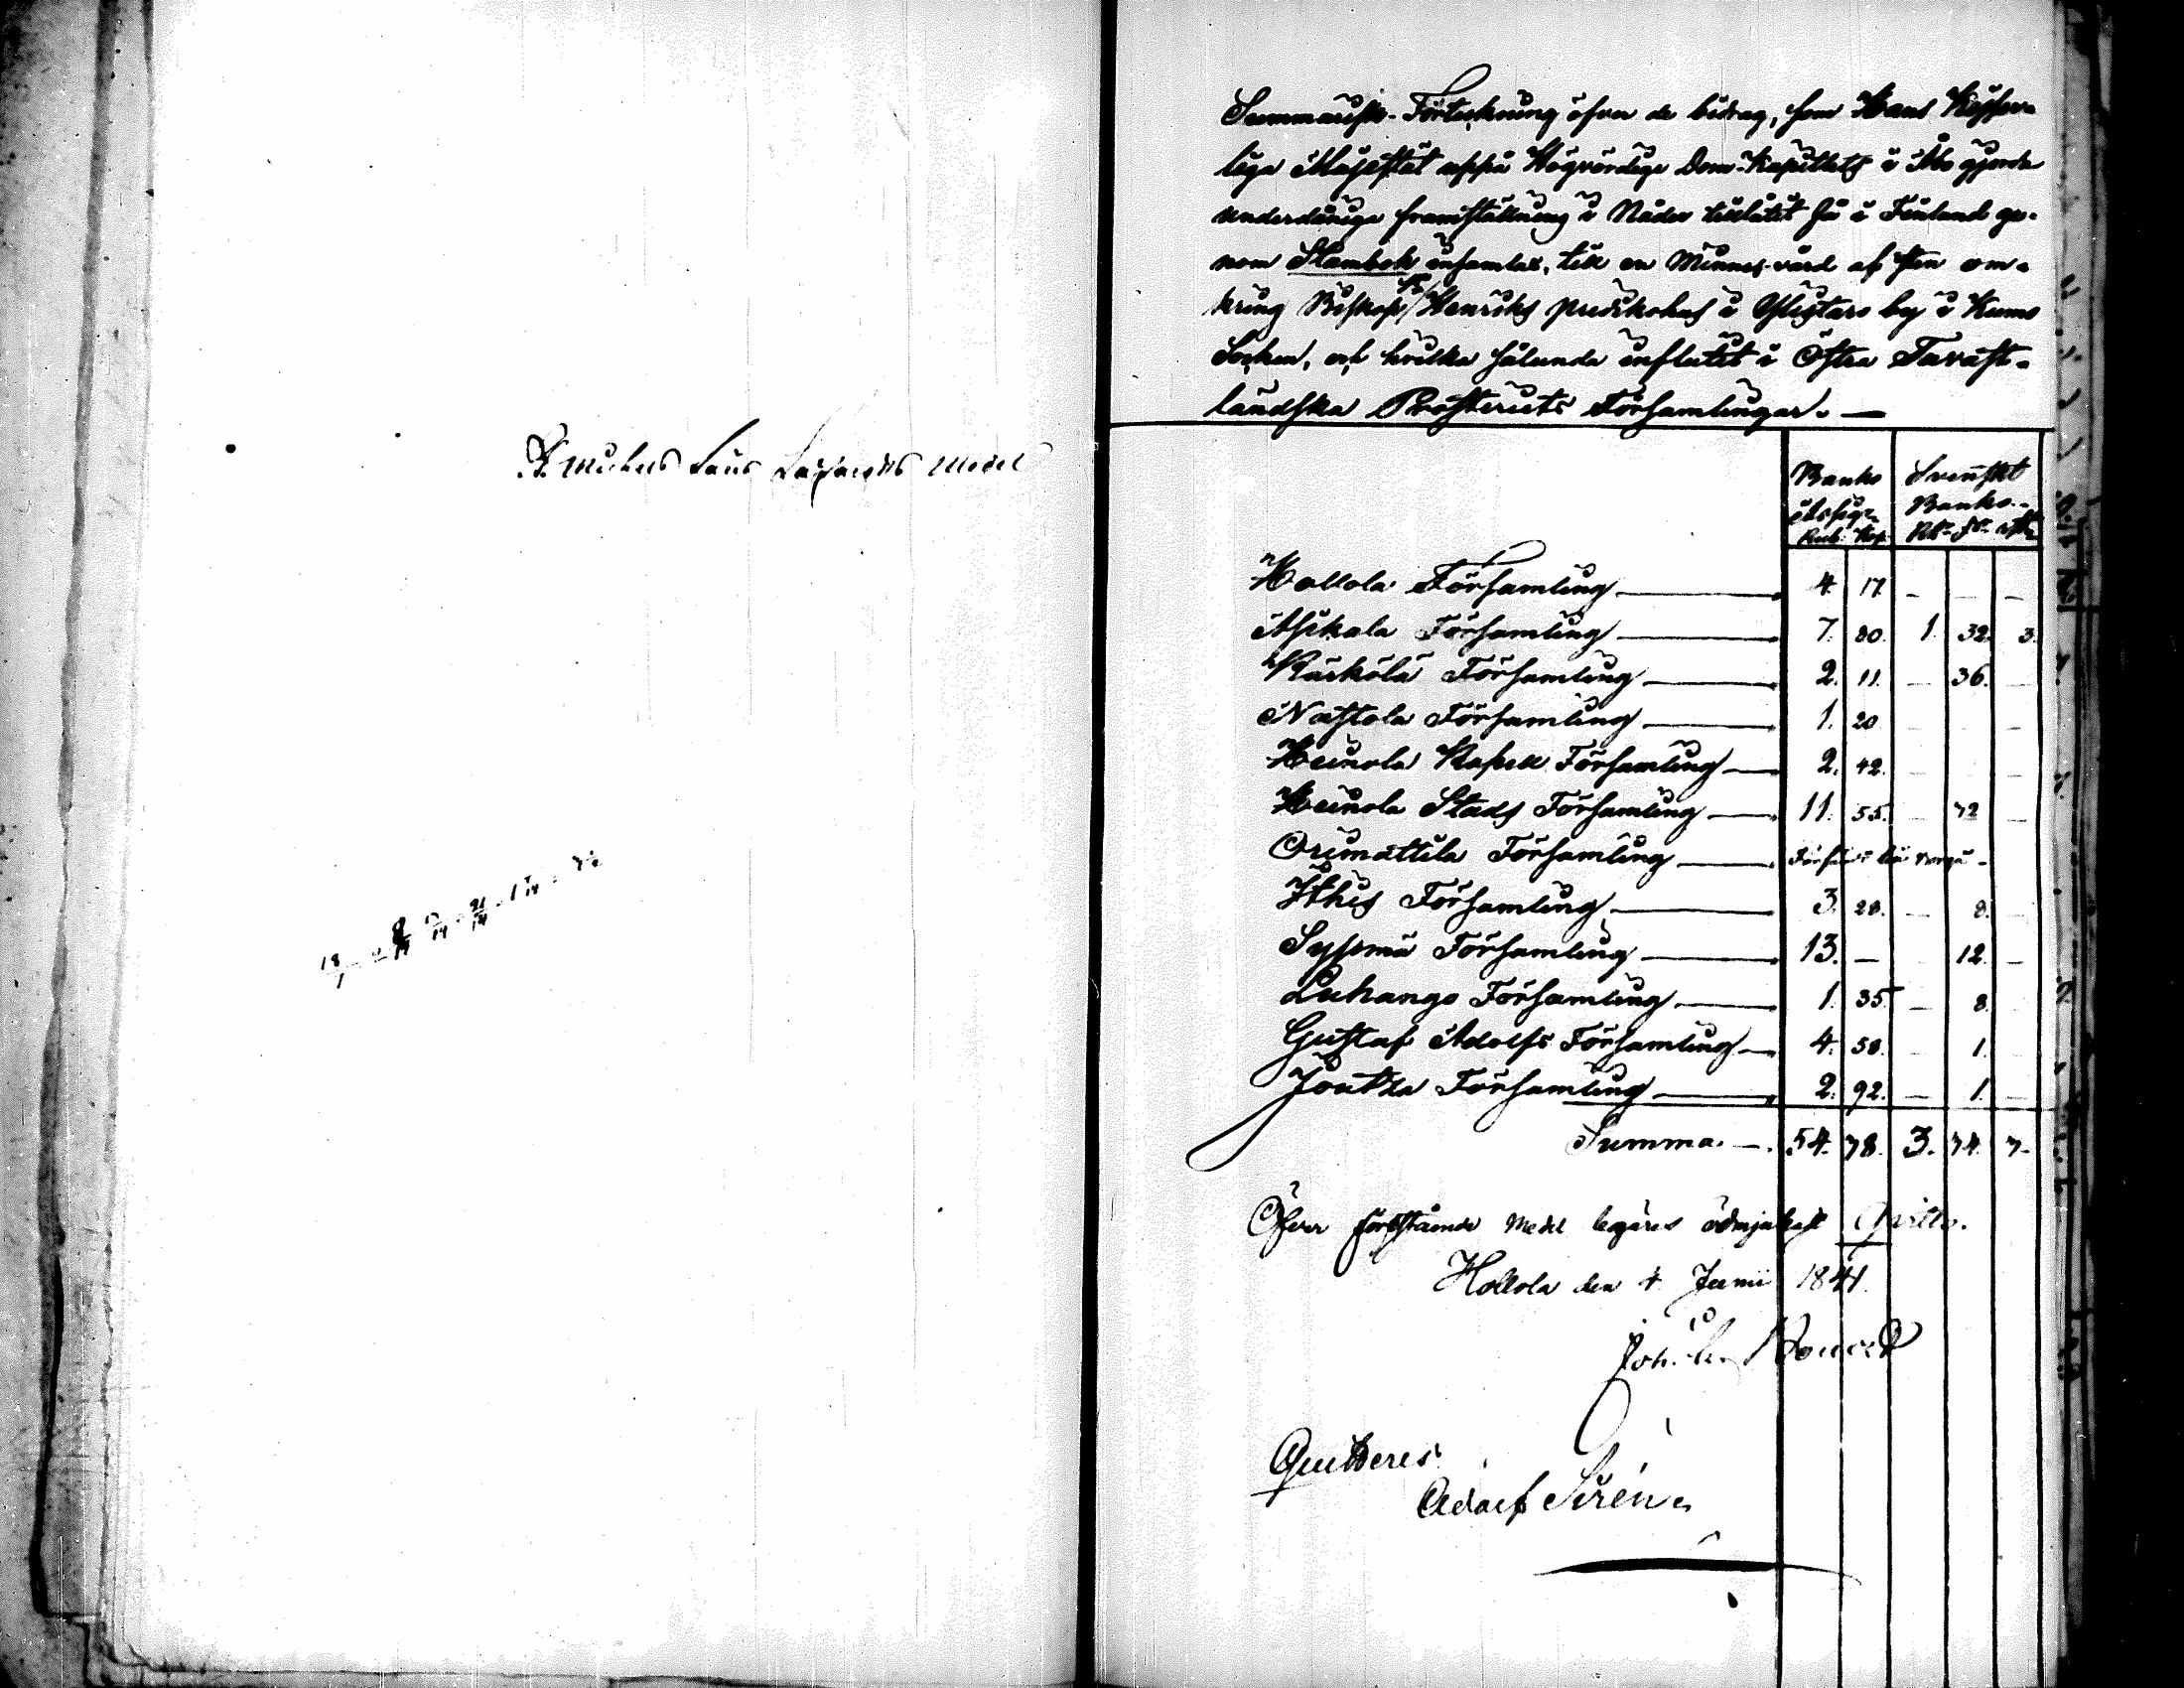 Summarisk Förteckning öfver de bidrag, som Hans Kejserliga
liga Majestät uppå Högvördige Dom-Kapitlets i Åbo gjorda
underdåniga framställning i Nåder tillåtit få i Finland ge-
nom Stambok insamlas, till en Minnes-vård af sten om-
kring Biskop St Henriks predikohus i Ylistaro by i Kumo
Socken, och hvilka sålunda influtit i Östra Tavast-
ländska Prosteriets Församlingar. —
Banko Svenskt
Assign. Banko.
Rub. Kop. Rd. sk. rst.
Hollola Församling 4. 17. — — —
Asikala Församling 7. 80. 1. 32. 3.
Kärkölä Församling 2. 11. — 36. —
Nastola Församling 1. 20 — — —
Heinola Kapell Församling 2. 42. — — —
Heinola Stads Församling 11. 55. — 72 —
Orimattila Församling
Ithis Församling 3. 28. — 8. —
Sysmä Församling 13. — 12. —
Luhango Församling 1. 35 — 8. —
Gustaf Adolfs Församling 4. 50. — 1. —
Joutsa Församling 2. 92. — 1. —
Summa. — 54. 78. 3. 74. 7.
Öfver förestående Medel begäres ödmjukast Qvitto.
Hollola den 4 Junii 1841.
Quitteres
Adolf Sirén